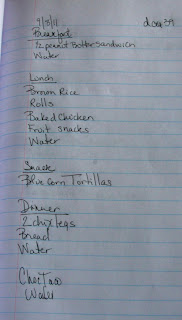 9/8/11 day 39
Breakfast
1/2 peanut Butter Sandwich
Water
Lunch
Brown Rice
Rolls
Baked Chicken
Fruit Snacks
Water
Snack
Blue Corn Tortillas
Dinner
2 chix legs
Bread
Water
Water